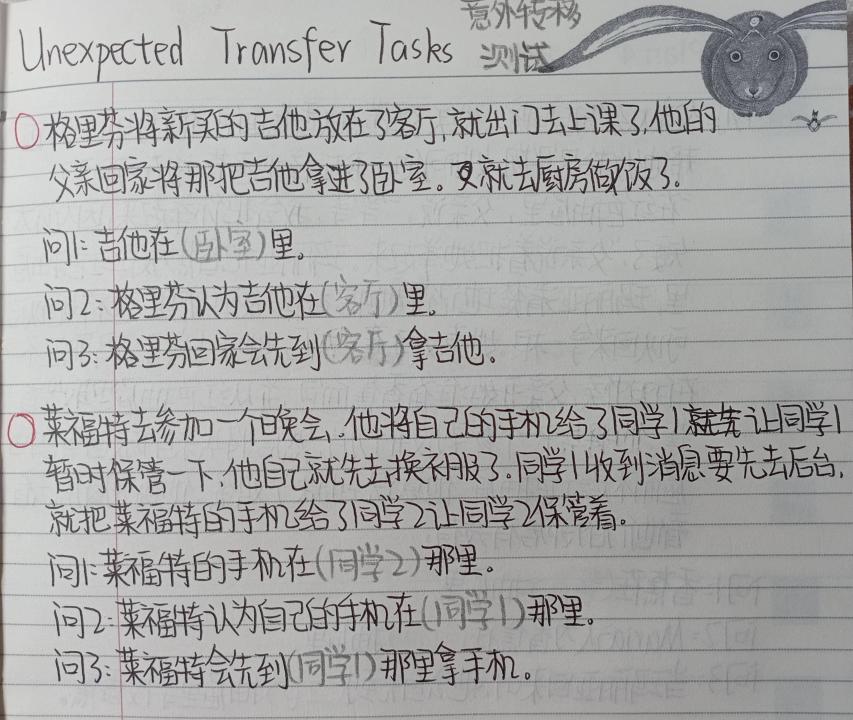 Unexpected Transfer Tasks 意外转移
测试
格里芬将新买的吉他放在了客厅,就出门去上课了,他的
父亲回家将那把吉他拿进了卧室。又就去厨房做饭了.
问1:吉他在(卧室)里。
问2:格里芬认为吉他在(客厅)里。
问3:格里芬回家会先到(客厅)拿吉他。
莱福特去参加一个晚会,他将自己的手机给了同学1就先让同学1
暂时保管一下,他自己就先去换衣服了.同学1收到消息要先去后台,
就把莱福特的手机给了同学2让同学2保管着。
问1:莱福特的手机在(同学2)那里。
问2:莱福特认为自己的手机在(同学1)那里。
问3:莱福特会先到(同学1)那里拿手机。